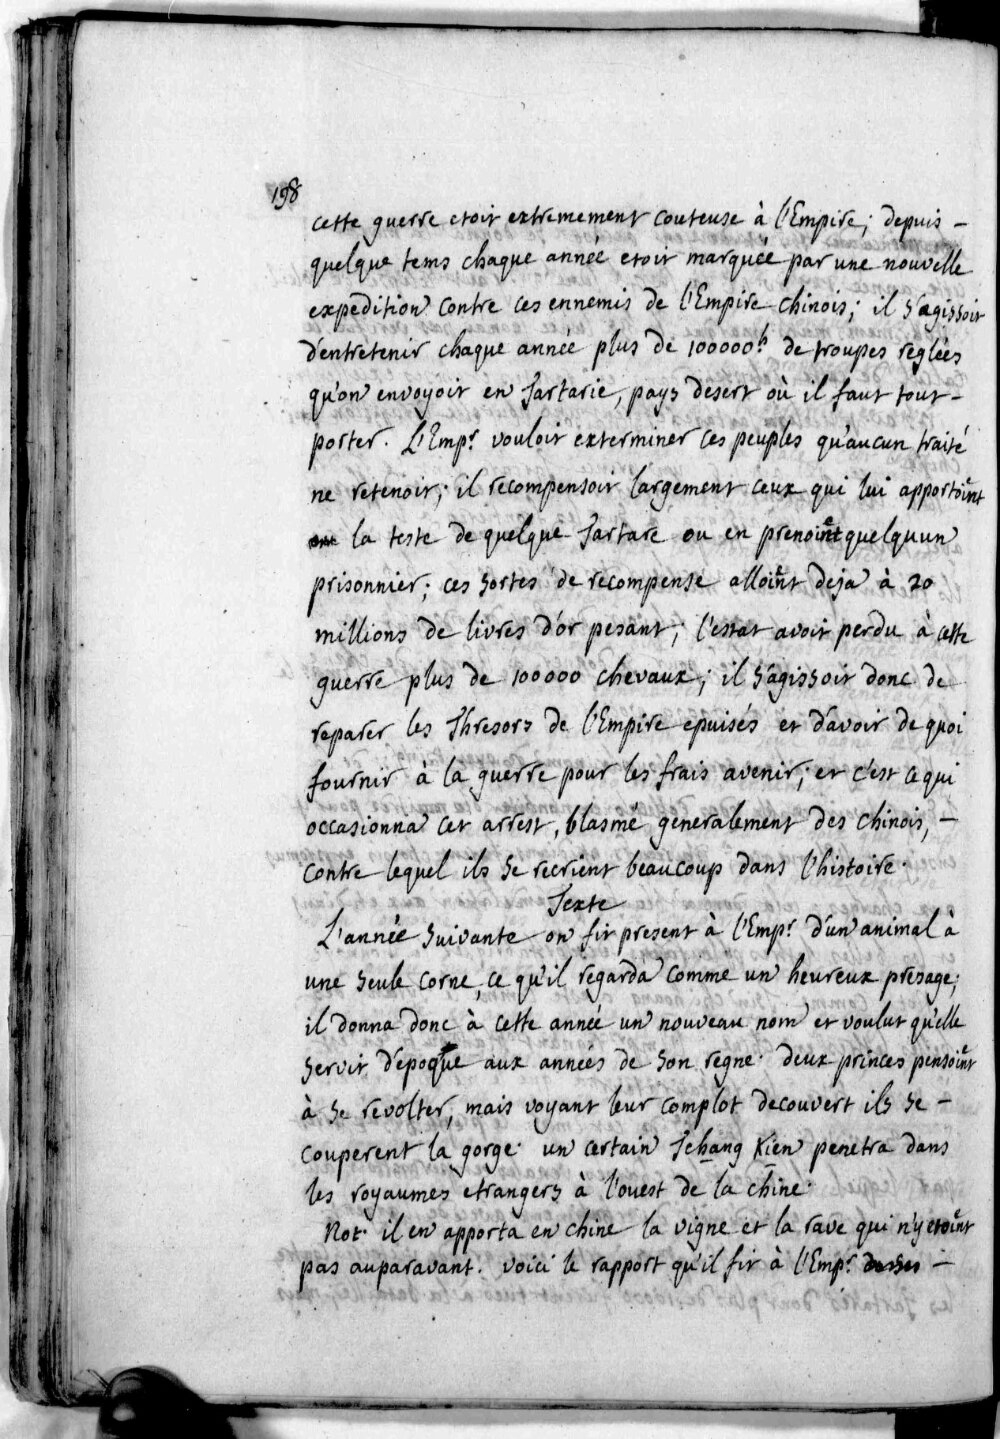 198
cette guerre etoit extremement couteuse à l'Empire; depuis –
quelque tems chaque année etoit marquée par une nouvelle
expedition contre ces ennemis de l'Empire chinois; il s'agissoit
d'entretenir chaque année plus de 100000.h de troupes reglées
qu'on envoyoit en Tartarie, pays desert où il faut tout –
porter. L'Emp.r vouloit exterminer ces peuples qu'aucun traité
ne retenoit; il recompensoit largement ceux qui lui apportoient
la teste de quelque Tartare ou en prenoient quelqu'un
prisonnier; ces sortes de recompense alloient deja à 20
millions de livres d'or pesant; l'estat avoit perdu à cette
guerre plus de 100000 chevaux; il s'agissoit donc de
reparer les Thresors de l'Empire epuisés et d'avoir de quoi
fournir à la guerre pour les frais avenir; et c'est ce qui
occasionna cet arrest, blasmé generalement des chinois, –
contre lequel ils se recrient beaucoup dans l'histoire.
Texte
L'année suivante on fit present à l'Emp.r d'un animal à
une seule corne, ce qu'il regarda comme un heureux presage;
il donna donc à cette année un nouveau nom et voulut qu'elle
servit d'epoque aux années de son regne. deux princes pensoient
à se revolter, mais voyant leur complot decouvert ils se –
couperent la gorge. un certain Tchang Kien penetra dans
les royaumes etrangers à l'ouest de la chine.
Not. il en apporta en chine la vigne et la rave qui n'y etoient
pas auparavant. voici le rapport qu'il fit à l'Emp.r –